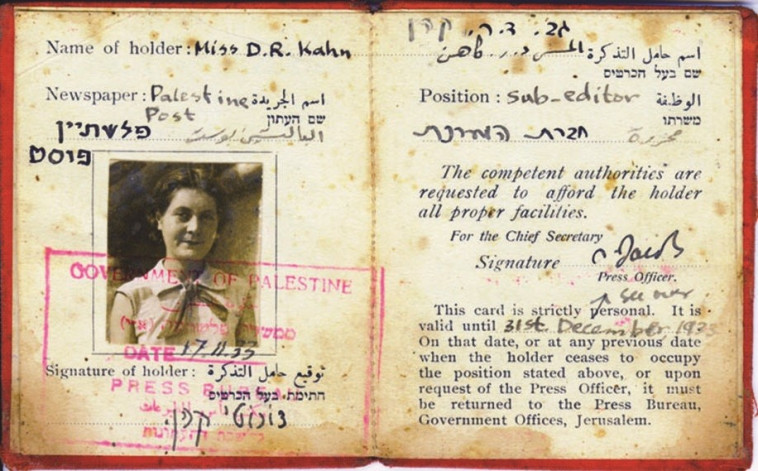 Name of holder: Miss D.R. Kahn
اسم حامل التذكرة
שם בעל הכרטיס
Newspaper: Palestine
Post
اسم الجريدة
שם העתון
פלשתיין
פוסט
GOVERNMENT OF PALESTINE
DATE 17.11.33
PRESS BUREAU
Signature of holder:
توقيع حامل التذكرة
חתימת בעל הכרטיס
גב. ד.ר. קהן
Position: Sub-editor
الوظيفة
משרתו
חברת המערכת
محررة
The competent authorities are
requested to afford the holder
all proper facilities.
For the Chief Secretary
Signature
Press Officer.
see over
This card is strictly personal. It is
valid until 31st December
On that date, or at any previous date
when the holder ceases to occupy
the position stated above, or upon
request of the Press Officer, it must
be returned to the Press Bureau,
Government Offices, Jerusalem.